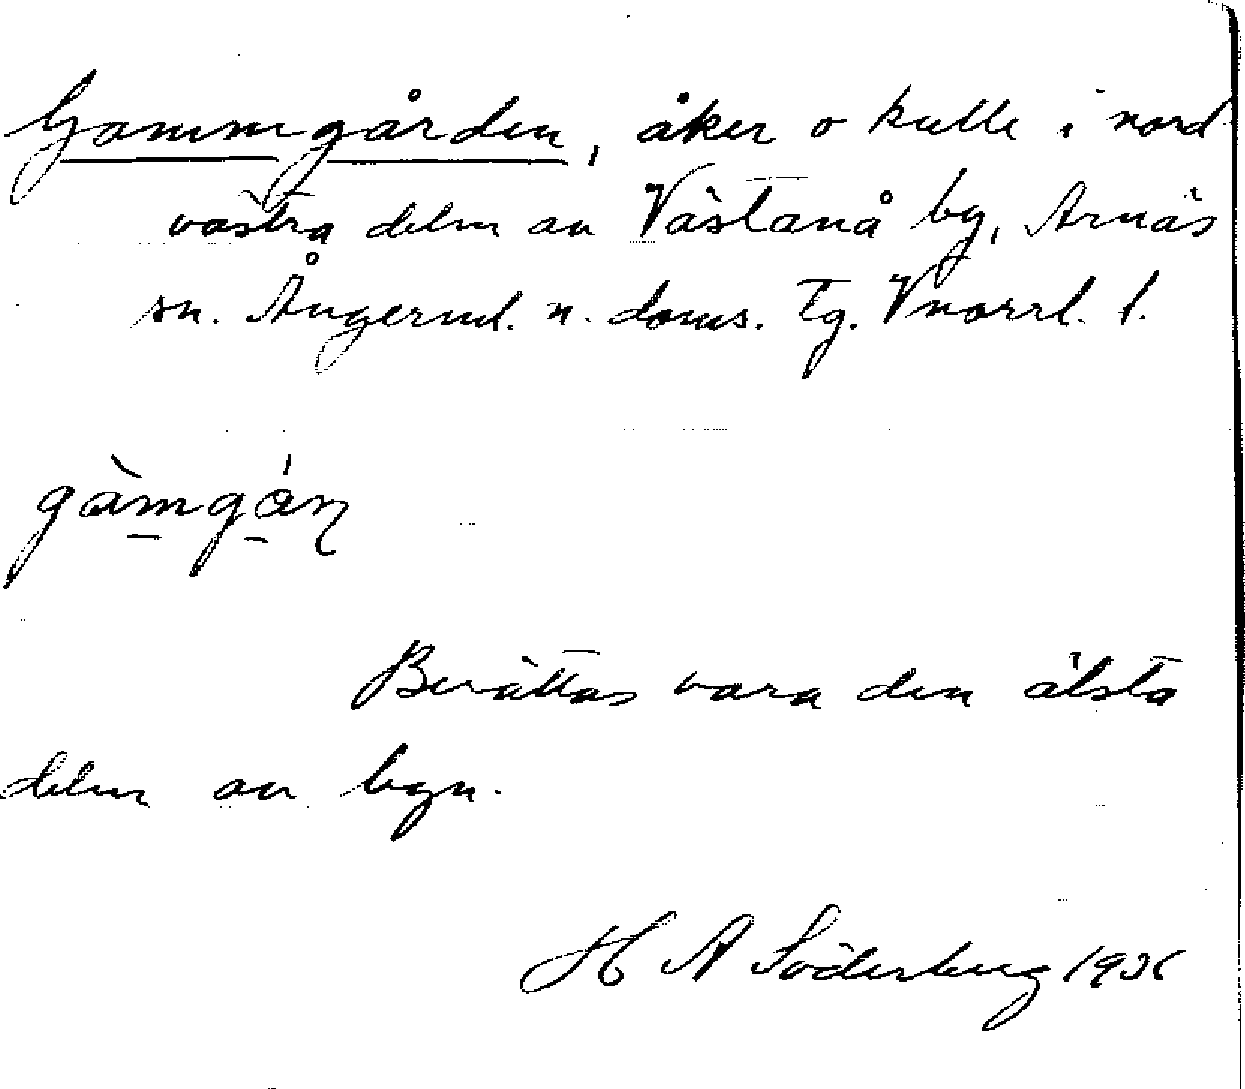 Gammgården, åker o kulle i nord
västra delen av Västanå by, Arnäs
sn. Ångerml. n. doms. Tg. Vnorrl. l.
gàmgá̱ṇ
Berättas vara den älsta
delen av byn.
H A Söderberg 1936